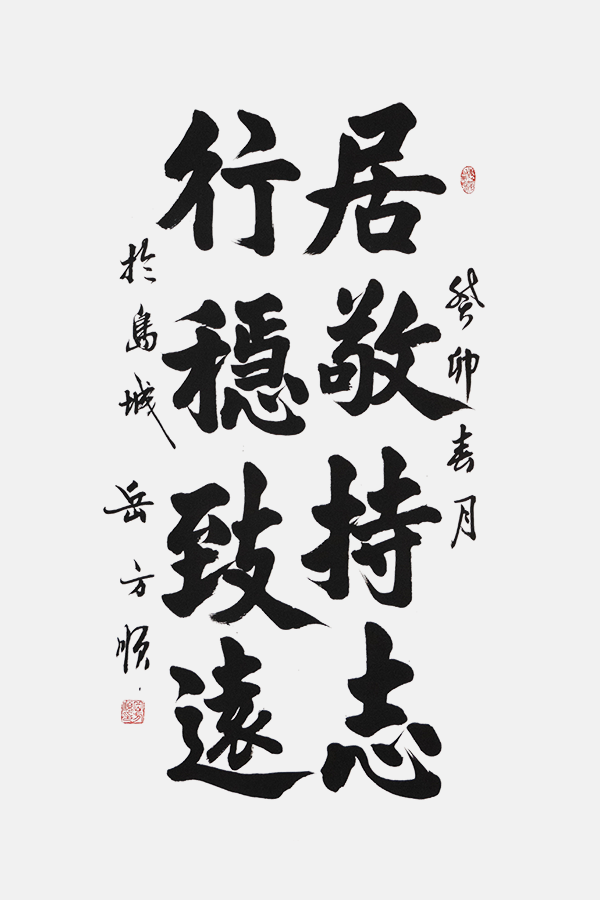 癸卯春月
居敬持志
行穩致遠
於島城
岳方順